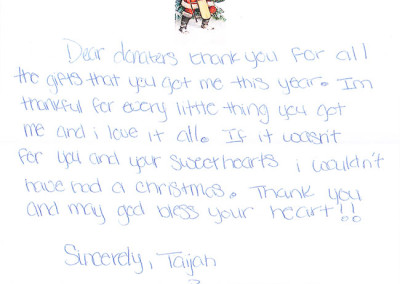 Dear donaters thank you for all
the gifts that you got me this year. Im
thankful for every little thing you got
me and i love it all. If it wasn't
for you and your sweethearts i wouldn't
have had a christmas. Thank you
and may god bless your heart!!
Sincerely, Taijah